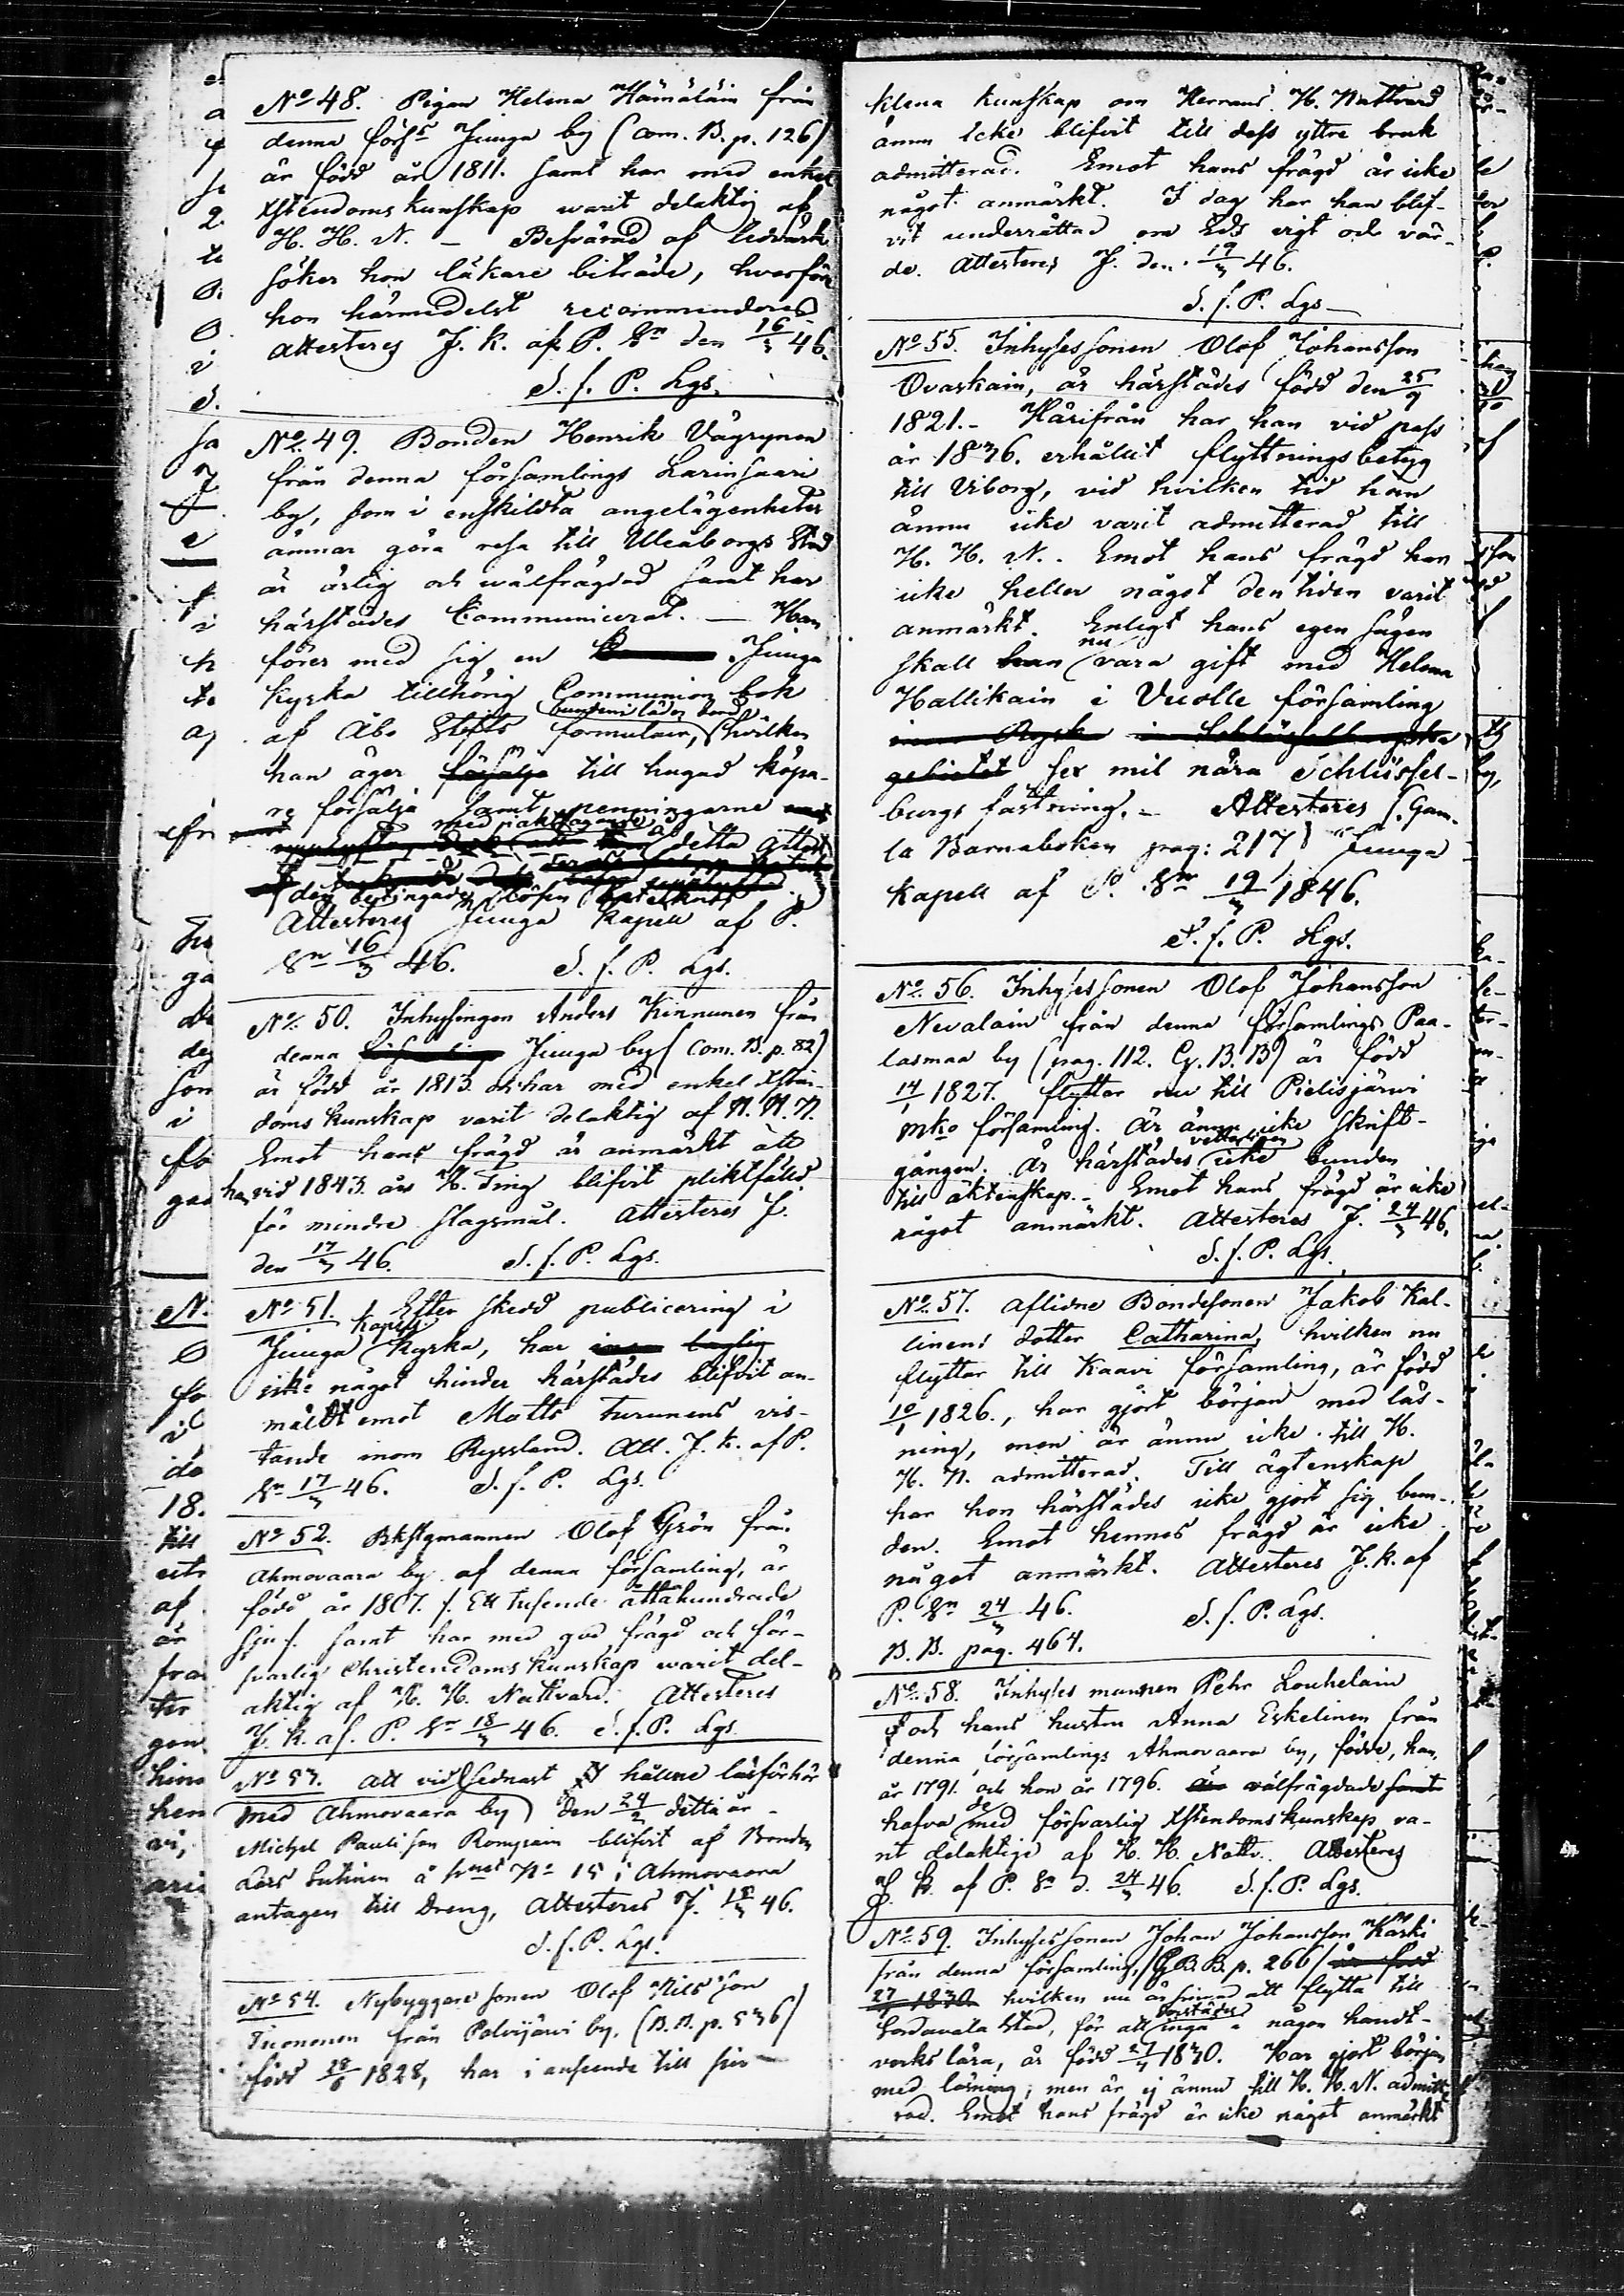 No 48. Pigan Helena Hämäläin från
denna förs:s Juuga by (Com. B. p. 126)
är född år 1811. samt har med enkel
Xstendoms kunskap warit delaktig af
H. H. N. — Besvärad af ledvärk
söker hon läkare biträde, hvarför
hon härmedelst recommenderas
Attesteras J. K. af P. Sn den 16/3 46.
S. f. P. Lgs.
No 49. Bonden Henrik Vägrynen
från denna församlings Larinsaari
by, som i enskildta angelägenheter
ämnar göra resa till Uleåborgs Stad
är ärlig och wälfrägdad samt har
härstädes Communicerat. — Han
förer med sig en Juuga
kyrka tillhörig Communion bok
af Åbo Stifts formulair, bunden i läder band hvilken
han äger försälja till hugad köpa-
re försälja samt penningarne
med iakttagande af detta Attest
den betingade löfen
Attesteras Juuga Kapell af P.
Sn 16/3 46. S. f. P. Lgs.
No 50. Inhysingen Anders Kinnunen från
denna församlings Juuga by (Com. B. p. 82)
är född år 1813. och har med enkel Xsten-
doms kunskap varit delaktig af H. H. N.
Emot hans frägd är anmärkt att
han vid 1843. års H. Ting blifvit pliktfälld
för mindre slagsmål. Attesteras J.
den 17/3 46. S. f. P. Lgs.
No 51. Efter skedd publicering i
Juuga kapells kyrka, har inga laglig
icke något hinder härstädes blifvit an-
mäldt emot Matts Turunens vis-
tande inom Ryssland. Att. J. K. af P.
Sn 17/3 46. S. f. P. Lgs.
No 52. Olof Grön från
Ahmovaara by af denna församling, är
född år 1807. s. Ett tusende åttahundrade
sju s. samt har med god frägd och för-
svarlig Christendoms kunskap warit del-
aktig af H. H. Nattvard. Attesteras
J. K. af. P. Sn 18/3 46. S. f. P. Lgs.
No 53. Att vid sednast hållne läsförhör
med Ahmovaara by den 24/2 detta år
Michel Paulison Romppain blifvit af Bonden
Lars Lukinen å No 15 i Ahmovaara
antagen till Dreng, Attesteras J. 18/3 46.
S. f. P. Lgs.
No 54. Nybyggare sonen Olof Nilsson
Tuononen från Polvijärvi by, (B. B. p. 536)
född 28/6 1828, har i anseende till sin
klena kunskap om Herrans H. Nattvard
ännu icke blifvit till dess yttre bruk
admitterad. Emot hans frägd är icke
något anmärkt. I dag har han blif-
vit underrättad om Eds vigt och vär-
de. Attesteras J. den 19/3 46.
S. f. P. Lgs
No 55. Inhysessonen Olof Johansson
Ovaskain, är härstädes född den 25/9
1821. - Härifrån har han vid pass
år 1836. erhållit flyttningsbetyg
till Viborg, vid hvilken tid han
ännu icke varit admitterad till
H. H. N. Emot hans frägd har
icke heller något den tiden varit
anmärkt. Enligt hans egen sägen
skall han nu vara gift med Helena
Hallikain i Vuolle församling
gebietet sex mil nära Schlüssel-
burgs fästning. - Attesteras (Gam-
la Barnaboken pag: 217) Juuga
Kapell af P. Sn 19/3 1846.
S. f. P. Lgs.
No 56. Inhysessonen Olof Johansson
Nevalain från denna församlings Paa-
lasmaa by (pag. 112. Cy. B. B) är född
14/1 1827. flyttar nu till Pielisjärvi
församling. Är ännu icke skrift-
gången. Är härstädes vetterligen icke bunden
till äktenskap. - Emot hans frägd är icke
något anmärkt. Attesteras J. 24/3 46.
S. f. P. Lgs.
No 57. Aflidne Bondesonen Jakob Kal-
linens dotter Catharina, hvilken nu
flyttar till Kaavi församling, är född
10/1 1826., har gjort början med läs-
ning, men är ännu icke till H.
H. N. admitterad. Till ägtenskap
har hon härstädes icke gjort sig bun-
den. Emot hennes frägd är icke
något anmärkt. Attesteras J. K. af
P. Sn 24/3 46. S. f. P. Lgs.
B. B. pag. 464.
No 58. Inhyses mannen Pehr Louhelain
och hans hustru Anna Eskelinen från
denna församlings Ahmovaara by, födde, han,
år 1791. och hon år 1796. äro välfrägdade samt
hafva de med försvarlig Xstendoms kunskap va-
rit delaktige af H. H. Nattv. Attesteras
J. K. af P. Sn d. 24/3 46. S. f. P. Lgs.
No 59. Inhysessonen Johan Johansson Karki
från denna församling, (G. B. B. p. 266) är född
27/3 1830. hvilken nu är sinnad att flytta till
Sordavala Stad, för att derstädes ingå i någon handt-
verks lära, är född 27/3 1830. Har gjort början
med läsning, men är ej ännu till H. H. N. admitte-
rad. Emot hans frägd är icke något anmärkt